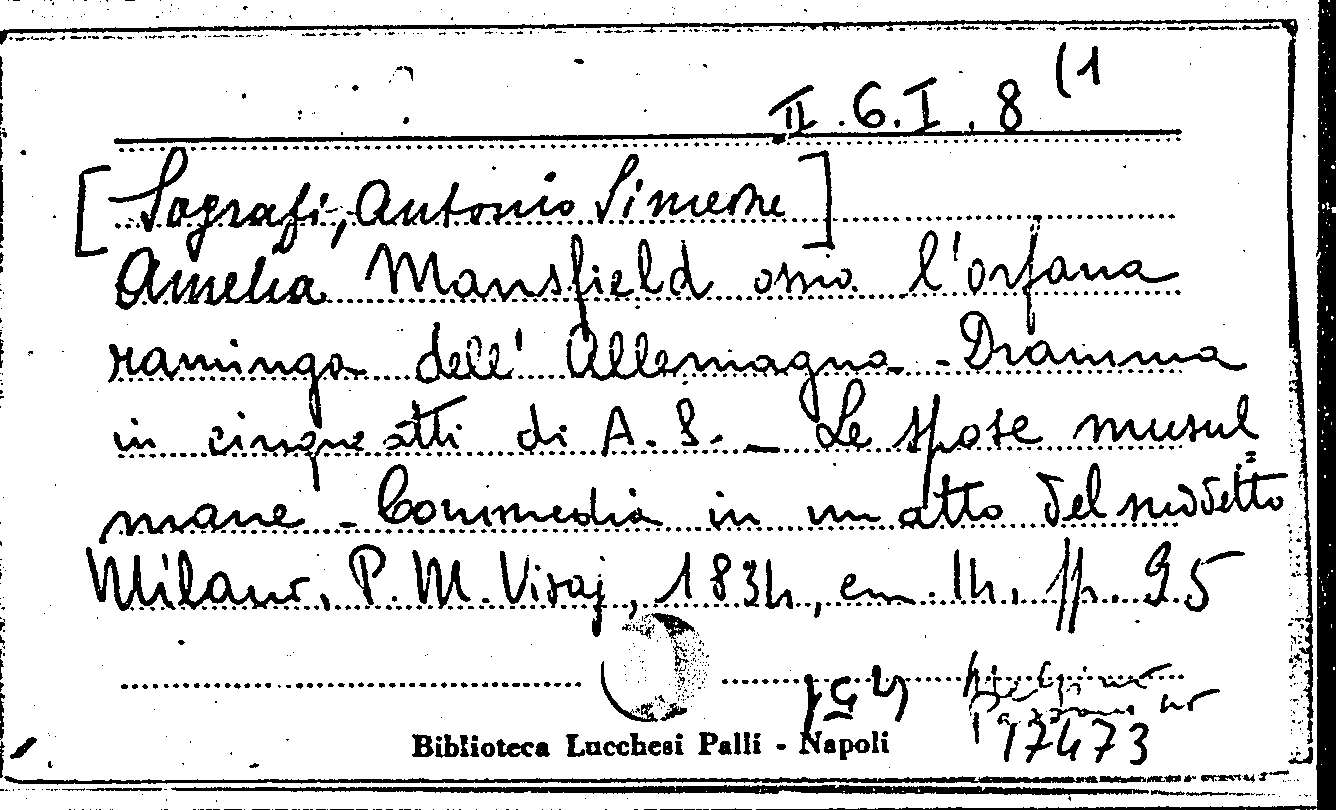 II.6.I.8 (1
[Sografi, Antonio Simeone]
Amelia Mansfield ossia l'orfana
raminga dell'Allemagna - Dramma
in cinque atti di A. S. - Le spose musul=
mane - Commedia in un atto del suddetto
Milano, P. M. Visaj, 1834, cm. 14, pp. 95
17473
Biblioteca Lucchesi Palli - Napoli